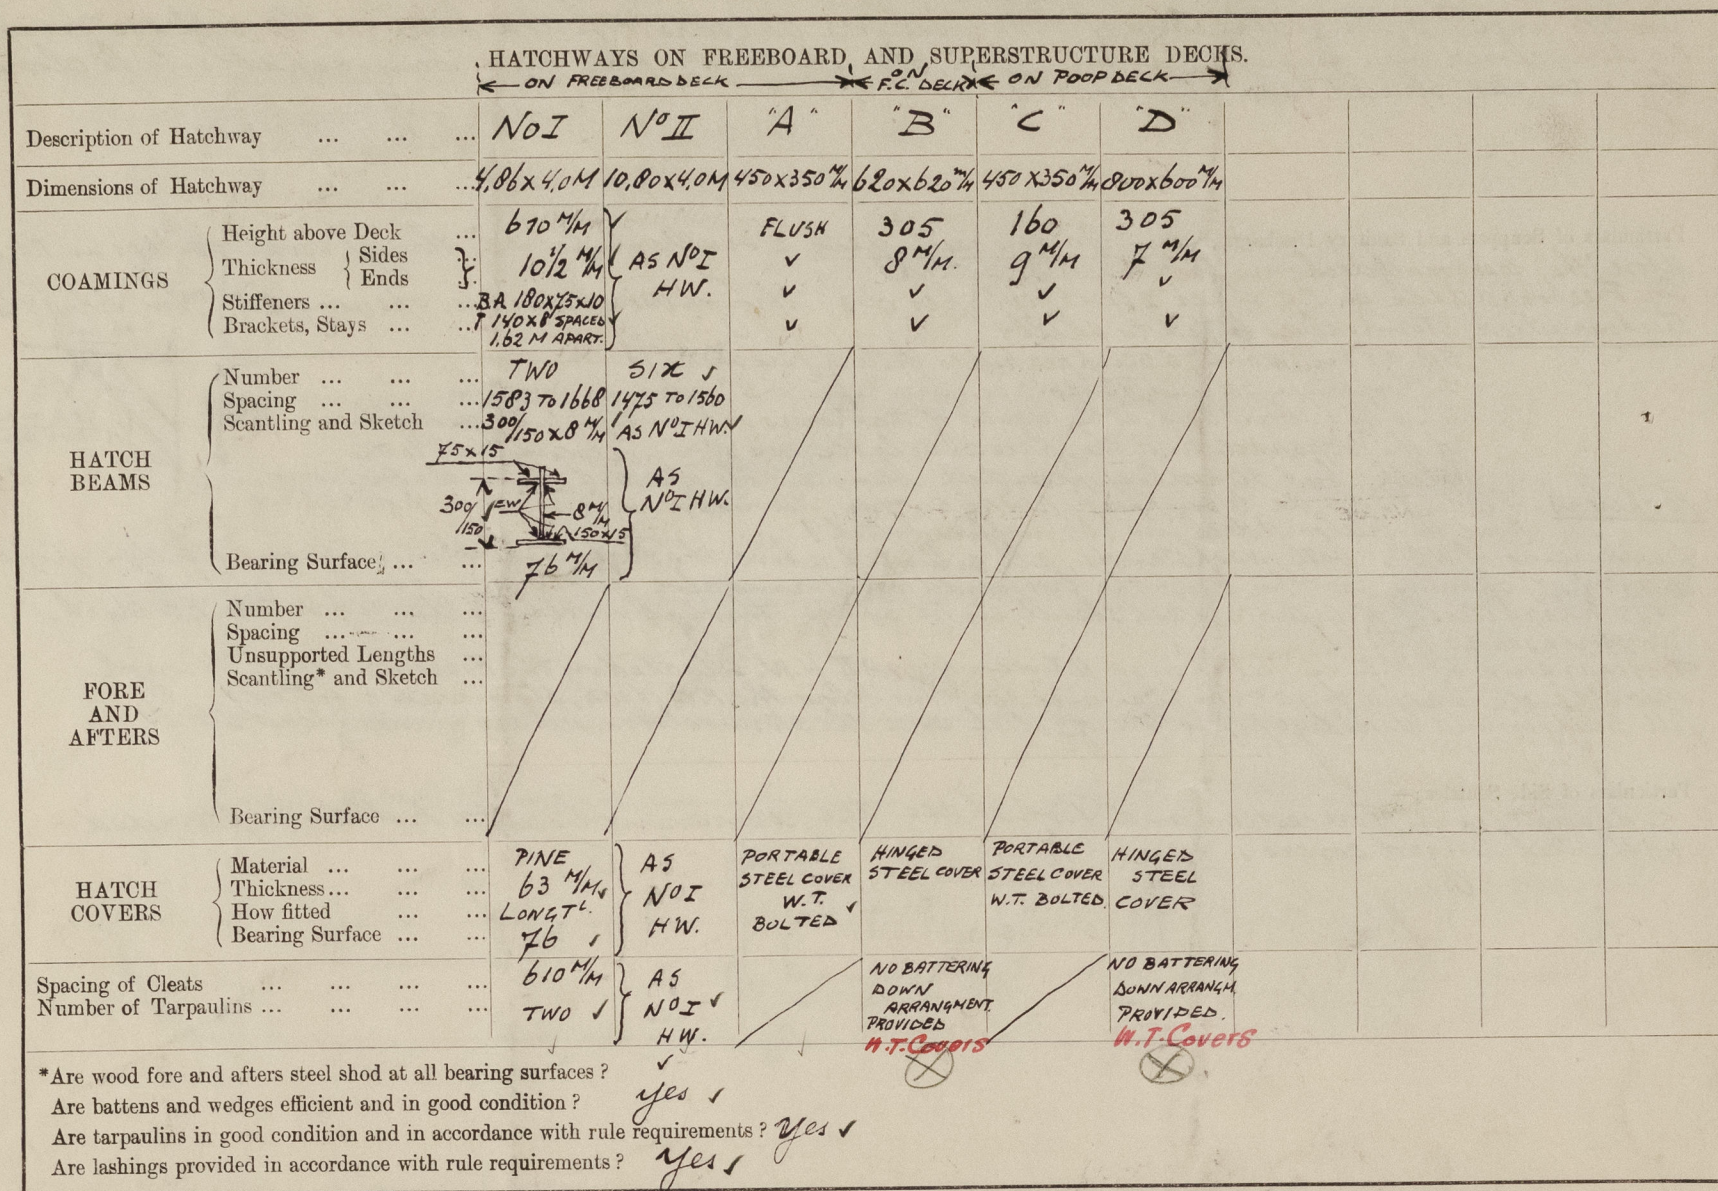 HATCHWAYS ON FREEBOARD AND SUPERSTRUCTURE DECKS.
ON FREEBOARD DECK ON F.C. DECK ON POOP DECK
Description of Hatchway ... ... ... No I No II "A" "B" "C" "D"
Dimensions of Hatchway ... ... ... 4,86 x 4,0 M 10,80 x 4,0 M 450 x 350 M/M 620 x 620 M/M 450 x 350 M/M 800 x 600 M/M
COAMINGS
Height above Deck ... 610 M/M FLUSH 305 160 305
Thickness { Sides Ends 10 1/2 M/M AS No I HW. ✓ 8 M/M. 9 M/M 7 M/M
Stiffeners ... ... ... BA 180x75x10 ✓ ✓ ✓ ✓
Brackets, Stays ... ... 140x8 SPACED ✓ ✓ ✓ ✓
1.62 M APART.
HATCH BEAMS
Number ... ... ... TWO SIX ✓
Spacing ... ... ... 1583 TO 1668 1475 TO 1560
Scantling and Sketch ... 300/150 x 8 M/M AS No I HW. ✓
75x15
300/150 EW 8 M/M 150x15
AS No I HW.
Bearing Surface ... ... 76 M/M
FORE AND AFTERS
Number ... ... ...
Spacing ... ... ...
Unsupported Lengths ...
Scantling* and Sketch ...
Bearing Surface ... ...
HATCH COVERS
Material ... ... ... PINE AS No I HW. PORTABLE STEEL COVER W.T. BOLTED ✓ HINGED STEEL COVER PORTABLE STEEL COVER W.T. BOLTED. HINGED STEEL COVER
Thickness ... ... ... 63 M/M ✓
How fitted ... ... LONGTL.
Bearing Surface ... ... 76 ✓
Spacing of Cleats ... ... ... ... 610 M/M AS No I HW. ✓ NO BATTERING DOWN ARRANGMENT. PROVIDED NO BATTERING DOWN ARRANGM. PROVIDED.
Number of Tarpaulins ... ... ... ... TWO ✓
W.T. Covers W.T. Covers
*Are wood fore and afters steel shod at all bearing surfaces ? ✓
Are battens and wedges efficient and in good condition ? Yes ✓
Are tarpaulins in good condition and in accordance with rule requirements ? Yes ✓
Are lashings provided in accordance with rule requirements ? Yes ✓